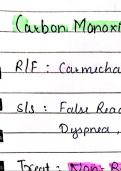 Carbon Monoxi
R/F : Carmicha
S/s : False Rea
Dyspnea,
Treat : Non-R